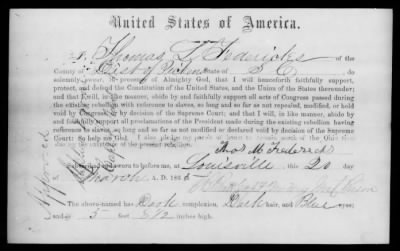 United States of America.
I, Thomas M. Fredericks of the
County of Dist of Colum State of D C do
solemnly swear, in presence of Almighty God, that I will henceforth faithfully support,
protect, and defend the Constitution of the United States, and the Union of the States thereunder;
and that I will, in like manner, abide by and faithfully support all acts of Congress passed during
the existing rebellion with reference to slaves, so long and so far as not repealed, modified, or held
void by Congress, or by decision of the Supreme Court; and that I will, in like manner, abide by
and faithfully support all proclamations of the President made during the existing rebellion having
reference to slaves, so long and so far as not modified or declared void by decision of the Supreme
Court: So help me God.
Thos M. Fredericks
Subscribed and sworn to before me, at
Louisville, this 20 day
of March A. D. 186
The above-named has Dark complexion, Dark hair, and Blue eyes;
and is 5 feet 8 1/2 inches high.
Approved